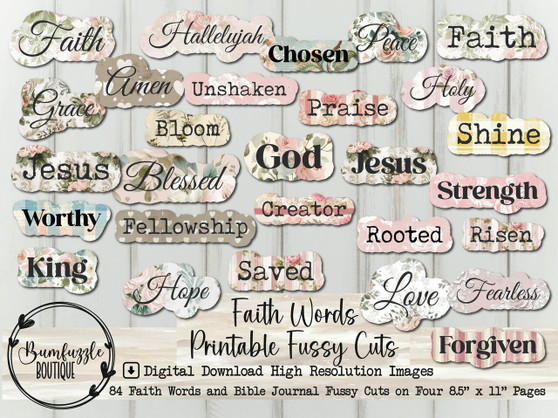 Faith
Hallelujah
Chosen
Peace
Faith
Amen
Unshaken
Holy
Grace
Praise
Bloom
Shine
God
Jesus
Blessed
Jesus
Strength
Worthy
Fellowship
Creator
Rooted
Risen
King
Saved
Hope
Love
Fearless
Faith Words
Printable Fussy Cuts
Forgiven
Bumfuzzle
BOUTIQUE
Digital Download High Resolution Images
84 Faith Words and Bible Journal Fussy Cuts on Four 8.5" x 11" Pages